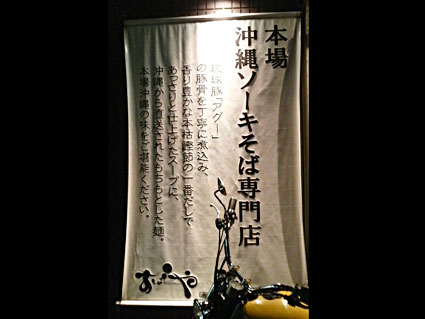 本場
沖縄ソーキそば専門店
琉球豚「アグー」
の豚骨を丁寧に煮込み、
香り豊かな本枯鰹節の一番だしで
あっさりと仕上げたスープに、
沖縄から直送されたもちもちとした麺。
本場沖縄の味をご堪能ください。